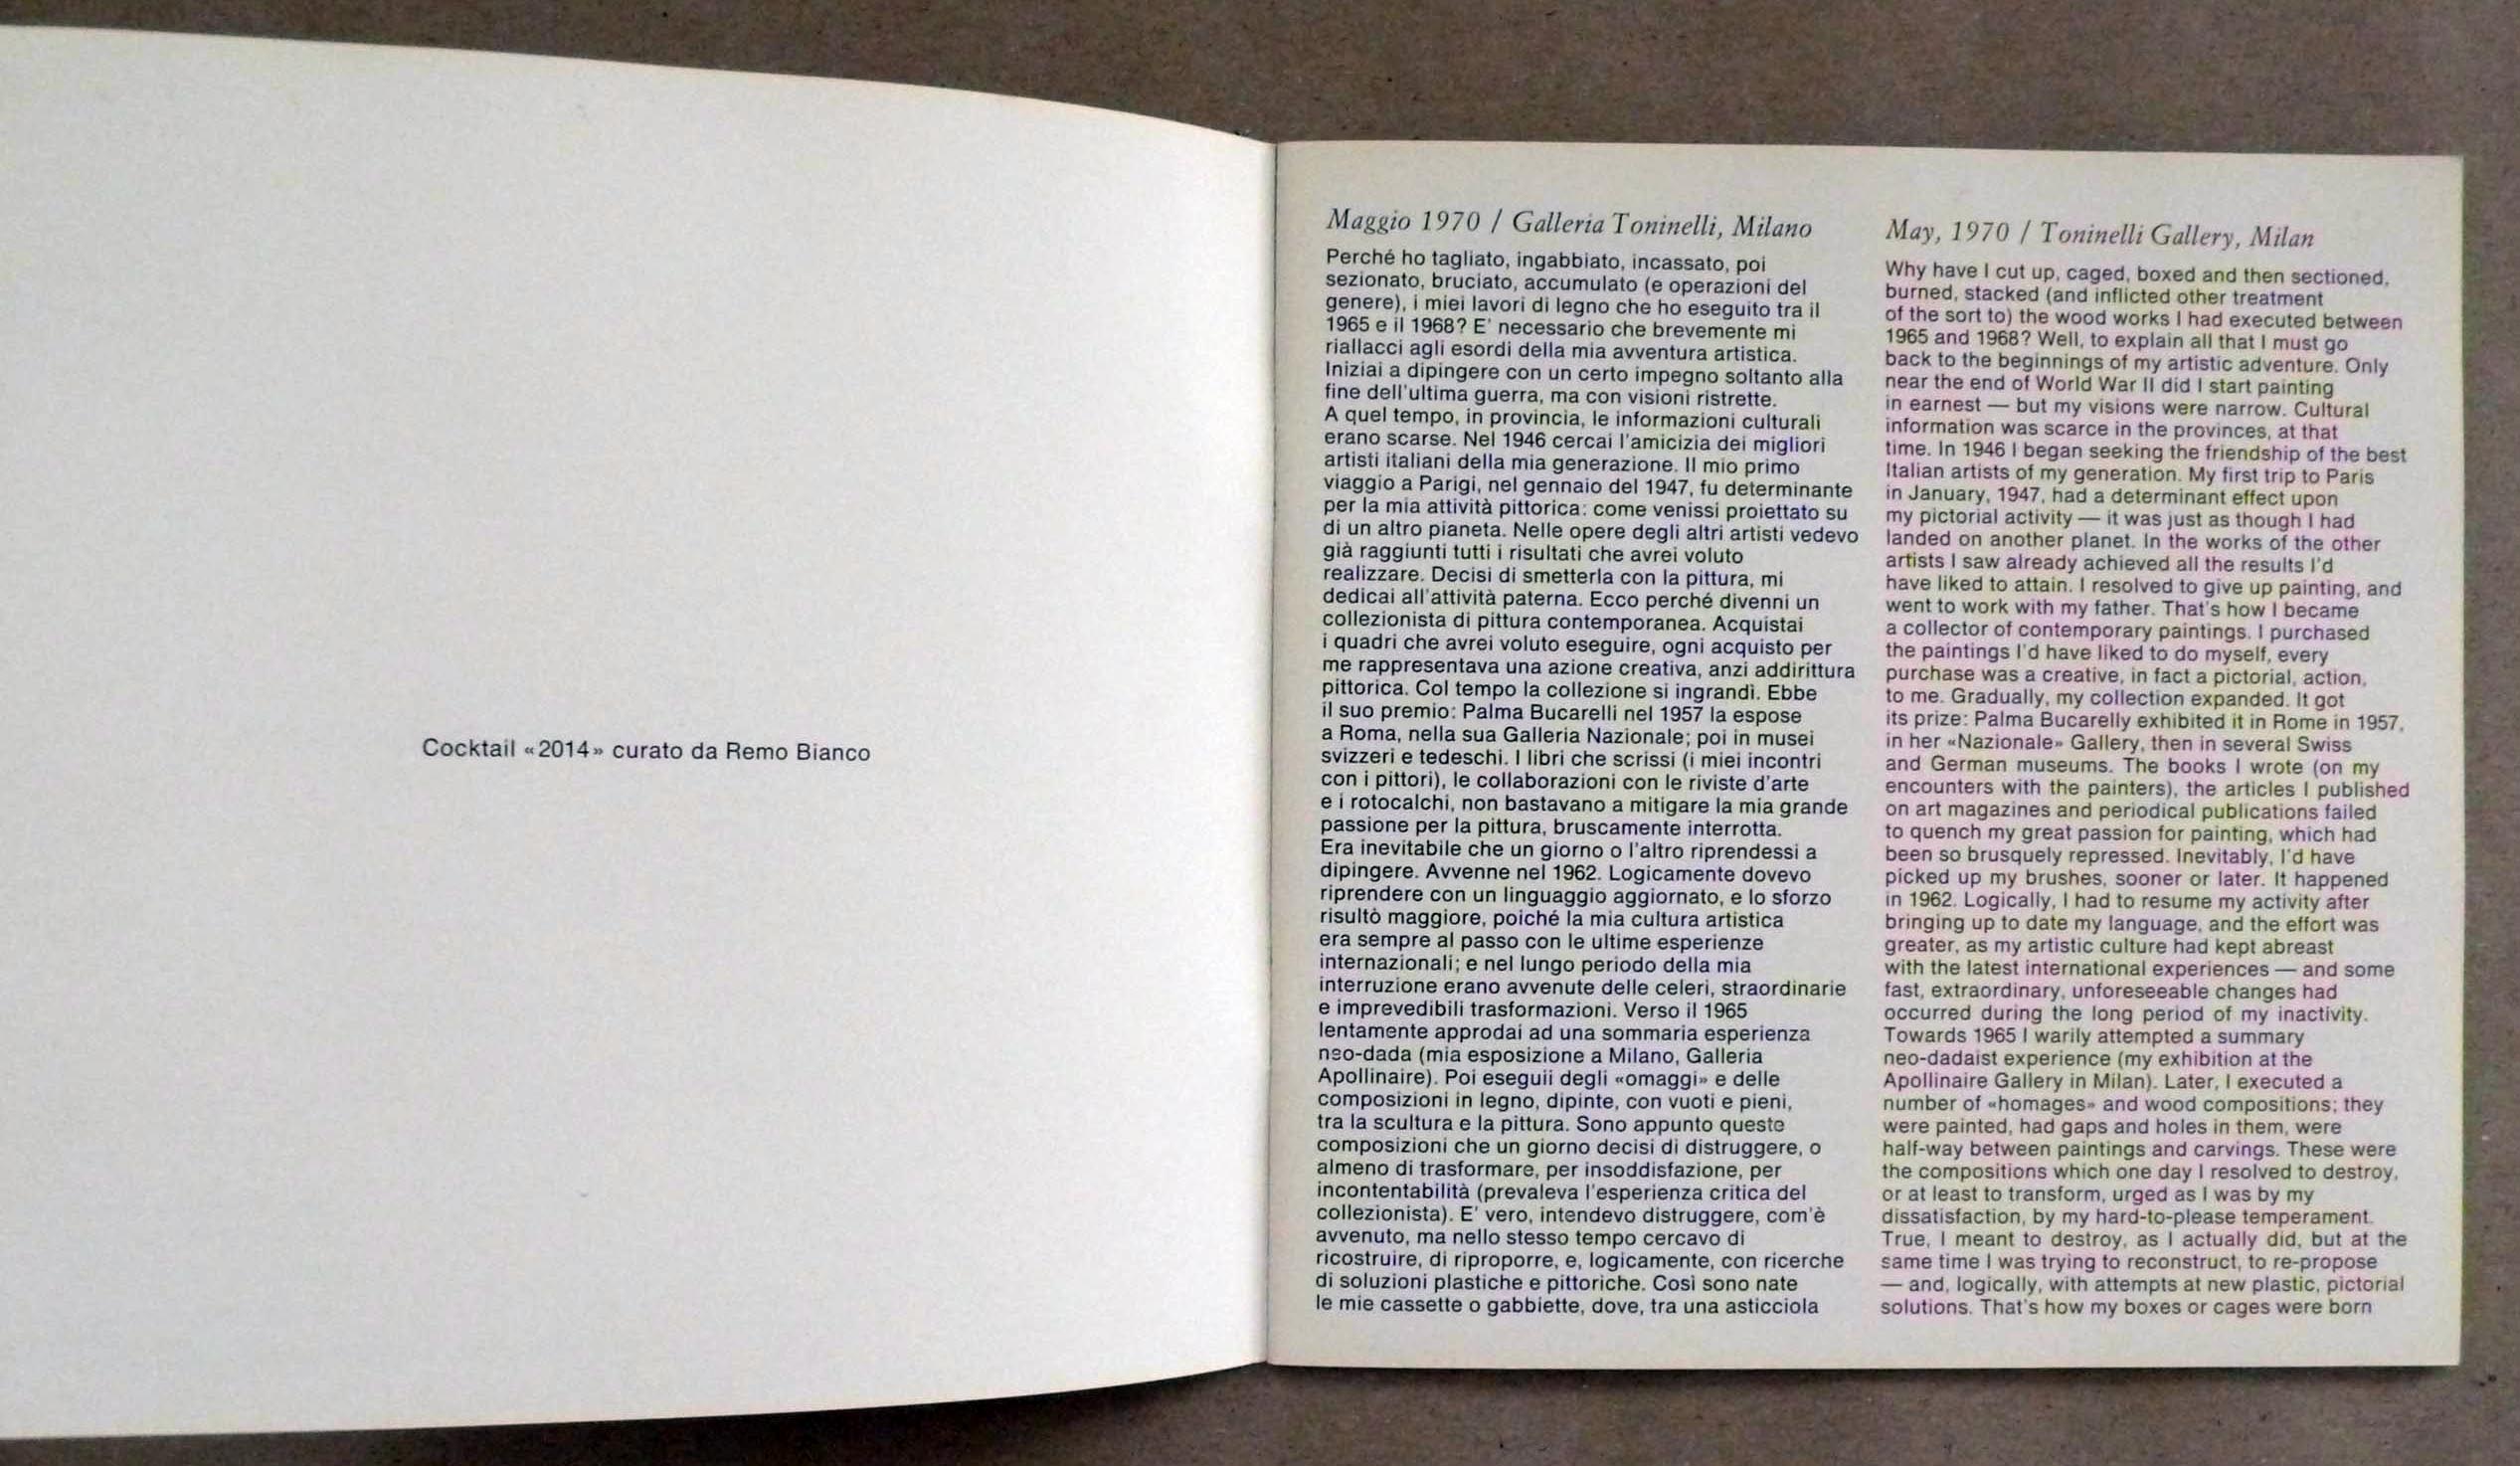 Cocktail «2014» curato da Remo Bianco
Maggio 1970 / Galleria Toninelli, Milano
Perché ho tagliato, ingabbiato, incassato, poi
sezionato, bruciato, accumulato (e operazioni del
genere), i miei lavori di legno che ho eseguito tra il
1965 e il 1968? E' necessario che brevemente mi
riallacci agli esordi della mia avventura artistica.
Iniziai a dipingere con un certo impegno soltanto alla
fine dell'ultima guerra, ma con visioni ristrette.
A quel tempo, in provincia, le informazioni culturali
erano scarse. Nel 1946 cercai l'amicizia dei migliori
artisti italiani della mia generazione. Il mio primo
viaggio a Parigi, nel gennaio del 1947, fu determinante
per la mia attività pittorica: come venissi proiettato su
di un altro pianeta. Nelle opere degli altri artisti vedevo
già raggiunti tutti i risultati che avrei voluto
realizzare. Decisi di smetterla con la pittura, mi
dedicai all'attività paterna. Ecco perché divenni un
collezionista di pittura contemporanea. Acquistai
i quadri che avrei voluto eseguire, ogni acquisto per
me rappresentava una azione creativa, anzi addirittura
pittorica. Col tempo la collezione si ingrandì. Ebbe
il suo premio: Palma Bucarelli nel 1957 la espose
a Roma, nella sua Galleria Nazionale; poi in musei
svizzeri e tedeschi. I libri che scrissi (i miei incontri
con i pittori), le collaborazioni con le riviste d'arte
e i rotocalchi, non bastavano a mitigare la mia grande
passione per la pittura, bruscamente interrotta.
Era inevitabile che un giorno o l'altro riprendessi a
dipingere. Avvenne nel 1962. Logicamente dovevo
riprendere con un linguaggio aggiornato, e lo sforzo
risultò maggiore, poiché la mia cultura artistica
era sempre al passo con le ultime esperienze
internazionali; e nel lungo periodo della mia
interruzione erano avvenute delle celeri, straordinarie
e imprevedibili trasformazioni. Verso il 1965
lentamente approdai ad una sommaria esperienza
neo-dada (mia esposizione a Milano, Galleria
Apollinaire). Poi eseguii degli «omaggi» e delle
composizioni in legno, dipinte, con vuoti e pieni,
tra la scultura e la pittura. Sono appunto queste
composizioni che un giorno decisi di distruggere, o
almeno di trasformare, per insoddisfazione, per
incontentabilità (prevaleva l'esperienza critica del
collezionista). E' vero, intendevo distruggere, com'è
avvenuto, ma nello stesso tempo cercavo di
ricostruire, di riproporre, e, logicamente, con ricerche
di soluzioni plastiche e pittoriche. Così sono nate
le mie cassette o gabbiette, dove, tra una asticciola
May, 1970 / Toninelli Gallery, Milan
Why have I cut up, caged, boxed and then sectioned,
burned, stacked (and inflicted other treatment
of the sort to) the wood works I had executed between
1965 and 1968? Well, to explain all that I must go
back to the beginnings of my artistic adventure. Only
near the end of World War II did I start painting
in earnest — but my visions were narrow. Cultural
information was scarce in the provinces, at that
time. In 1946 I began seeking the friendship of the best
Italian artists of my generation. My first trip to Paris
in January, 1947, had a determinant effect upon
my pictorial activity — it was just as though I had
landed on another planet. In the works of the other
artists I saw already achieved all the results I'd
have liked to attain. I resolved to give up painting, and
went to work with my father. That's how I became
a collector of contemporary paintings. I purchased
the paintings I'd have liked to do myself, every
purchase was a creative, in fact a pictorial, action,
to me. Gradually, my collection expanded. It got
its prize: Palma Bucarelly exhibited it in Rome in 1957,
in her «Nazionale» Gallery, then in several Swiss
and German museums. The books I wrote (on my
encounters with the painters), the articles I published
on art magazines and periodical publications failed
to quench my great passion for painting, which had
been so brusquely repressed. Inevitably, I'd have
picked up my brushes, sooner or later. It happened
in 1962. Logically, I had to resume my activity after
bringing up to date my language, and the effort was
greater, as my artistic culture had kept abreast
with the latest international experiences — and some
fast, extraordinary, unforeseeable changes had
occurred during the long period of my inactivity.
Towards 1965 I warily attempted a summary
neo-dadaist experience (my exhibition at the
Apollinaire Gallery in Milan). Later, I executed a
number of «homages» and wood compositions; they
were painted, had gaps and holes in them, were
half-way between paintings and carvings. These were
the compositions which one day I resolved to destroy,
or at least to transform, urged as I was by my
dissatisfaction, by my hard-to-please temperament.
True, I meant to destroy, as I actually did, but at the
same time I was trying to reconstruct, to re-propose
— and, logically, with attempts at new plastic, pictorial
solutions. That's how my boxes or cages were born